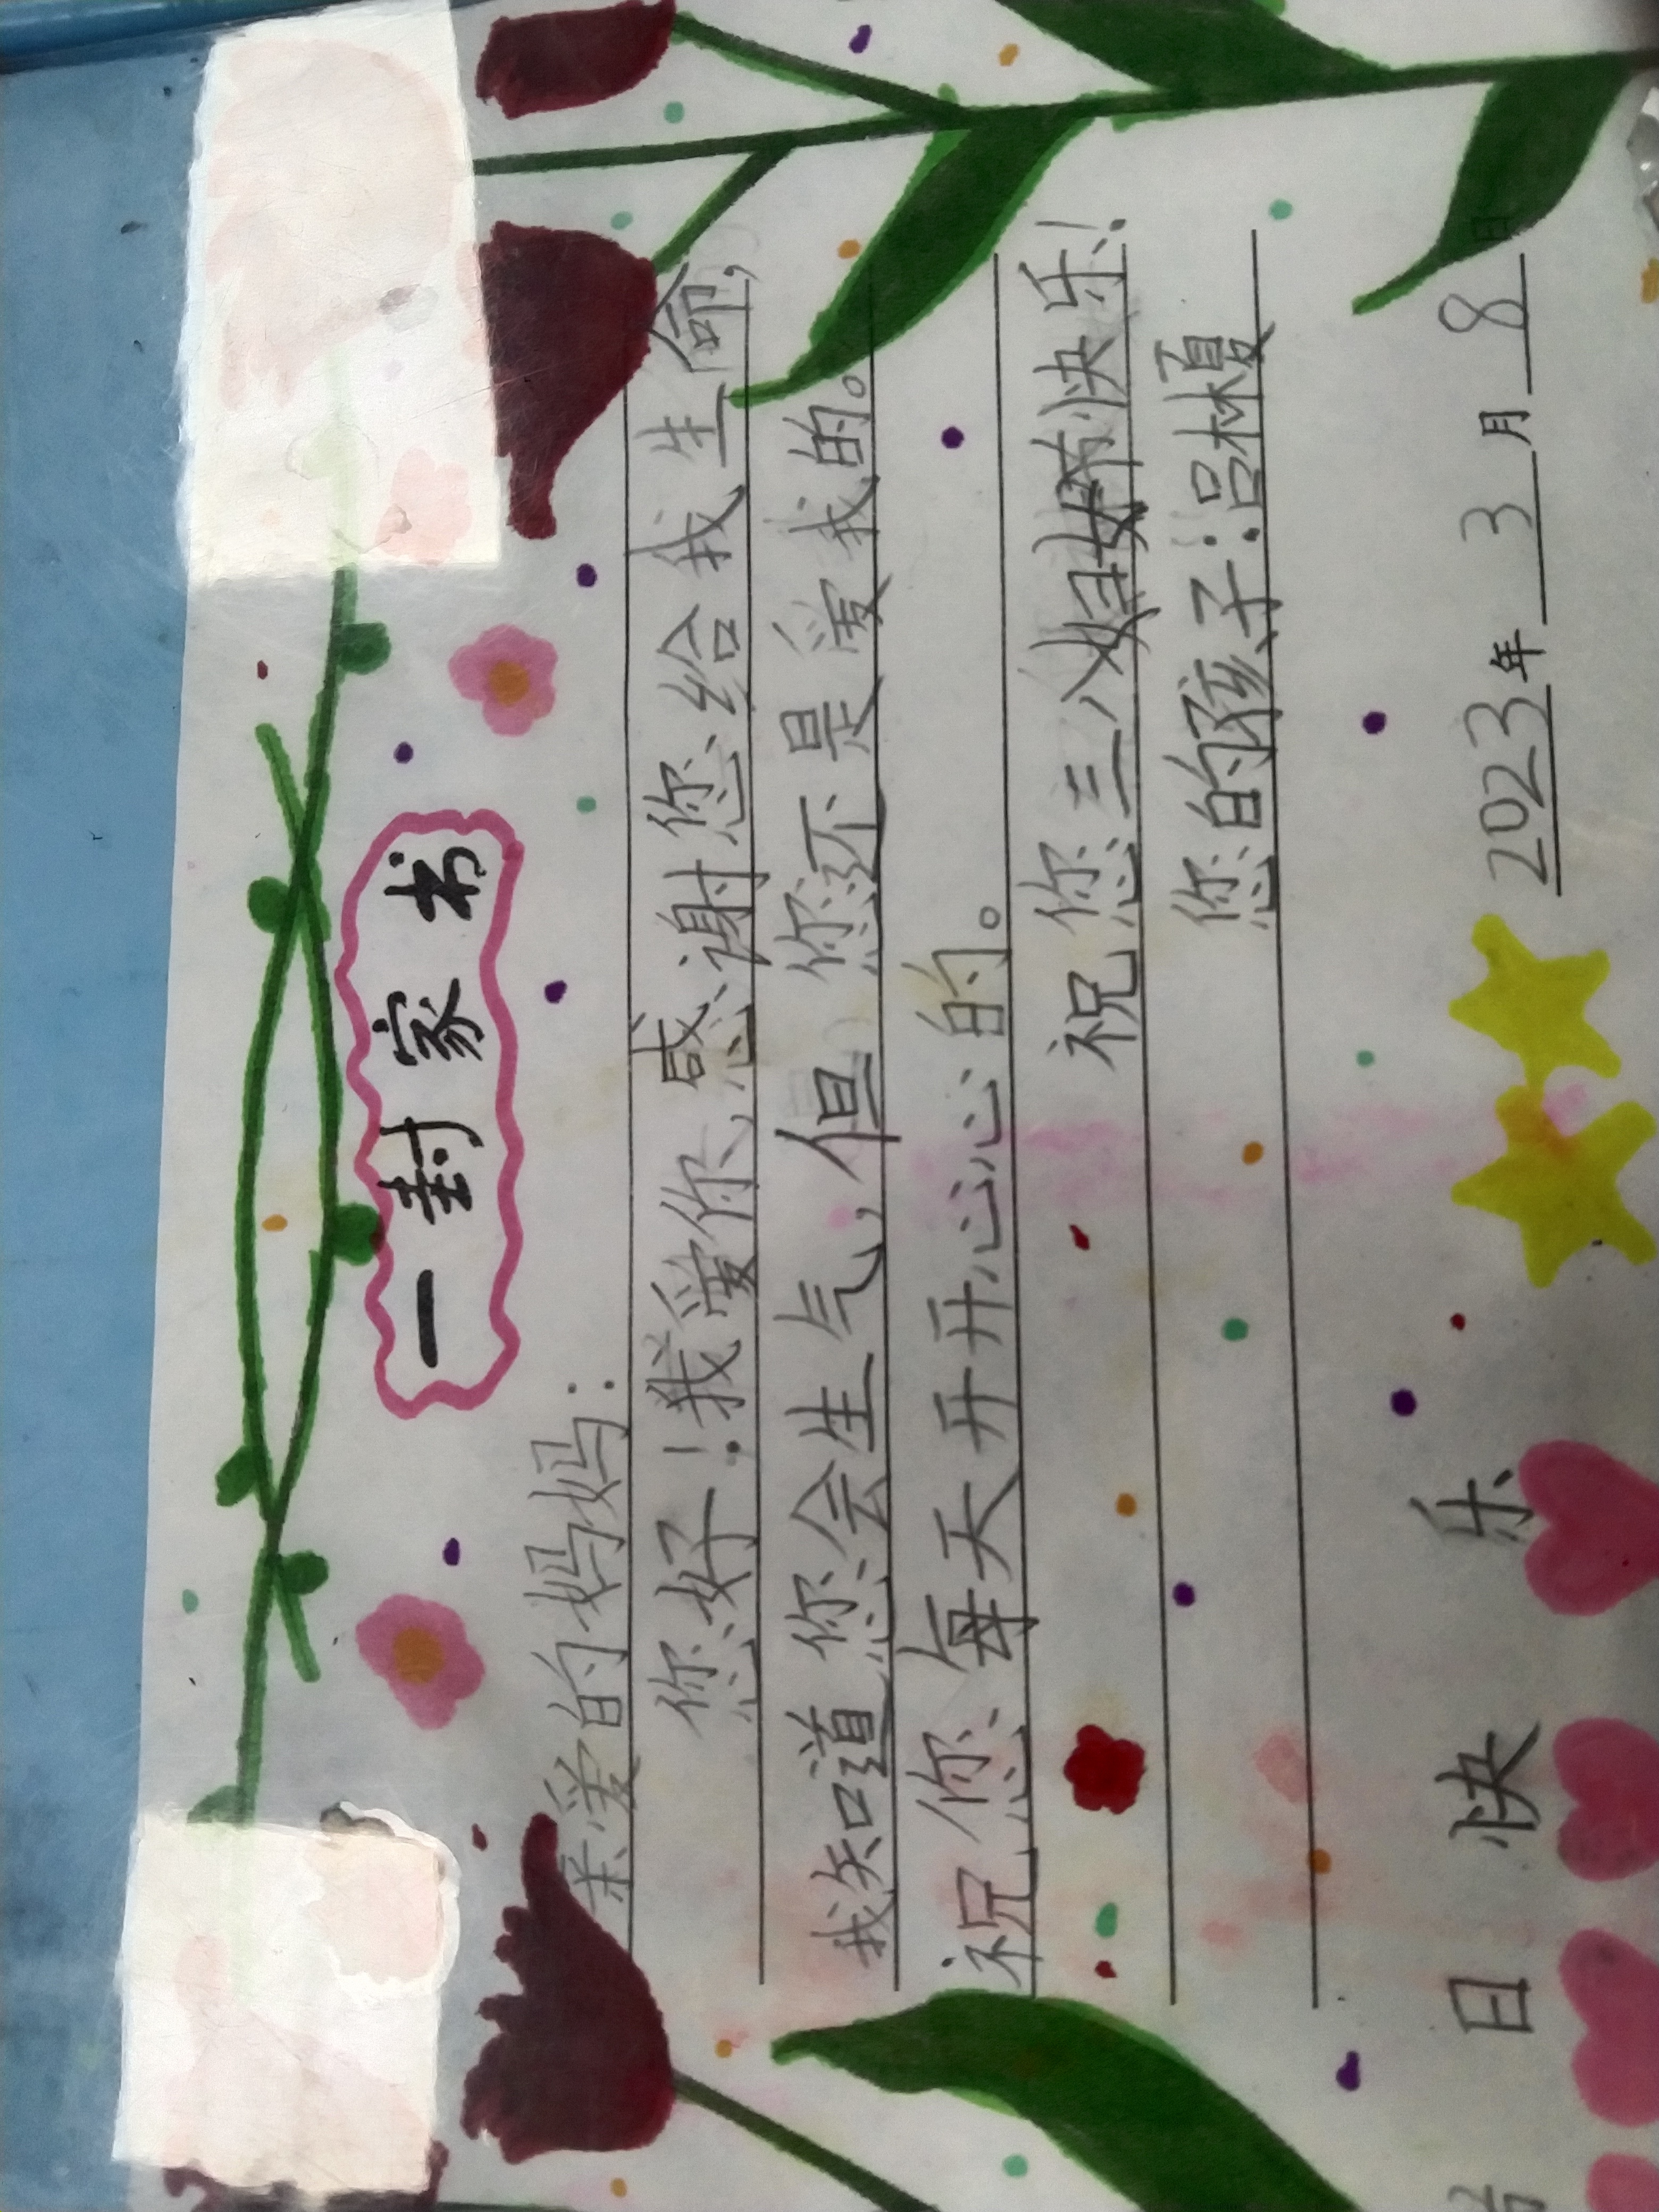 一封家书
亲爱的妈妈:
您好!我爱你,感谢您给我生命,
我知道您会生气,但您还是爱我的。
祝您每天开开心心的。
祝您三八妇女节快乐!
您的孩子:吕
2023年3月8日
日快乐